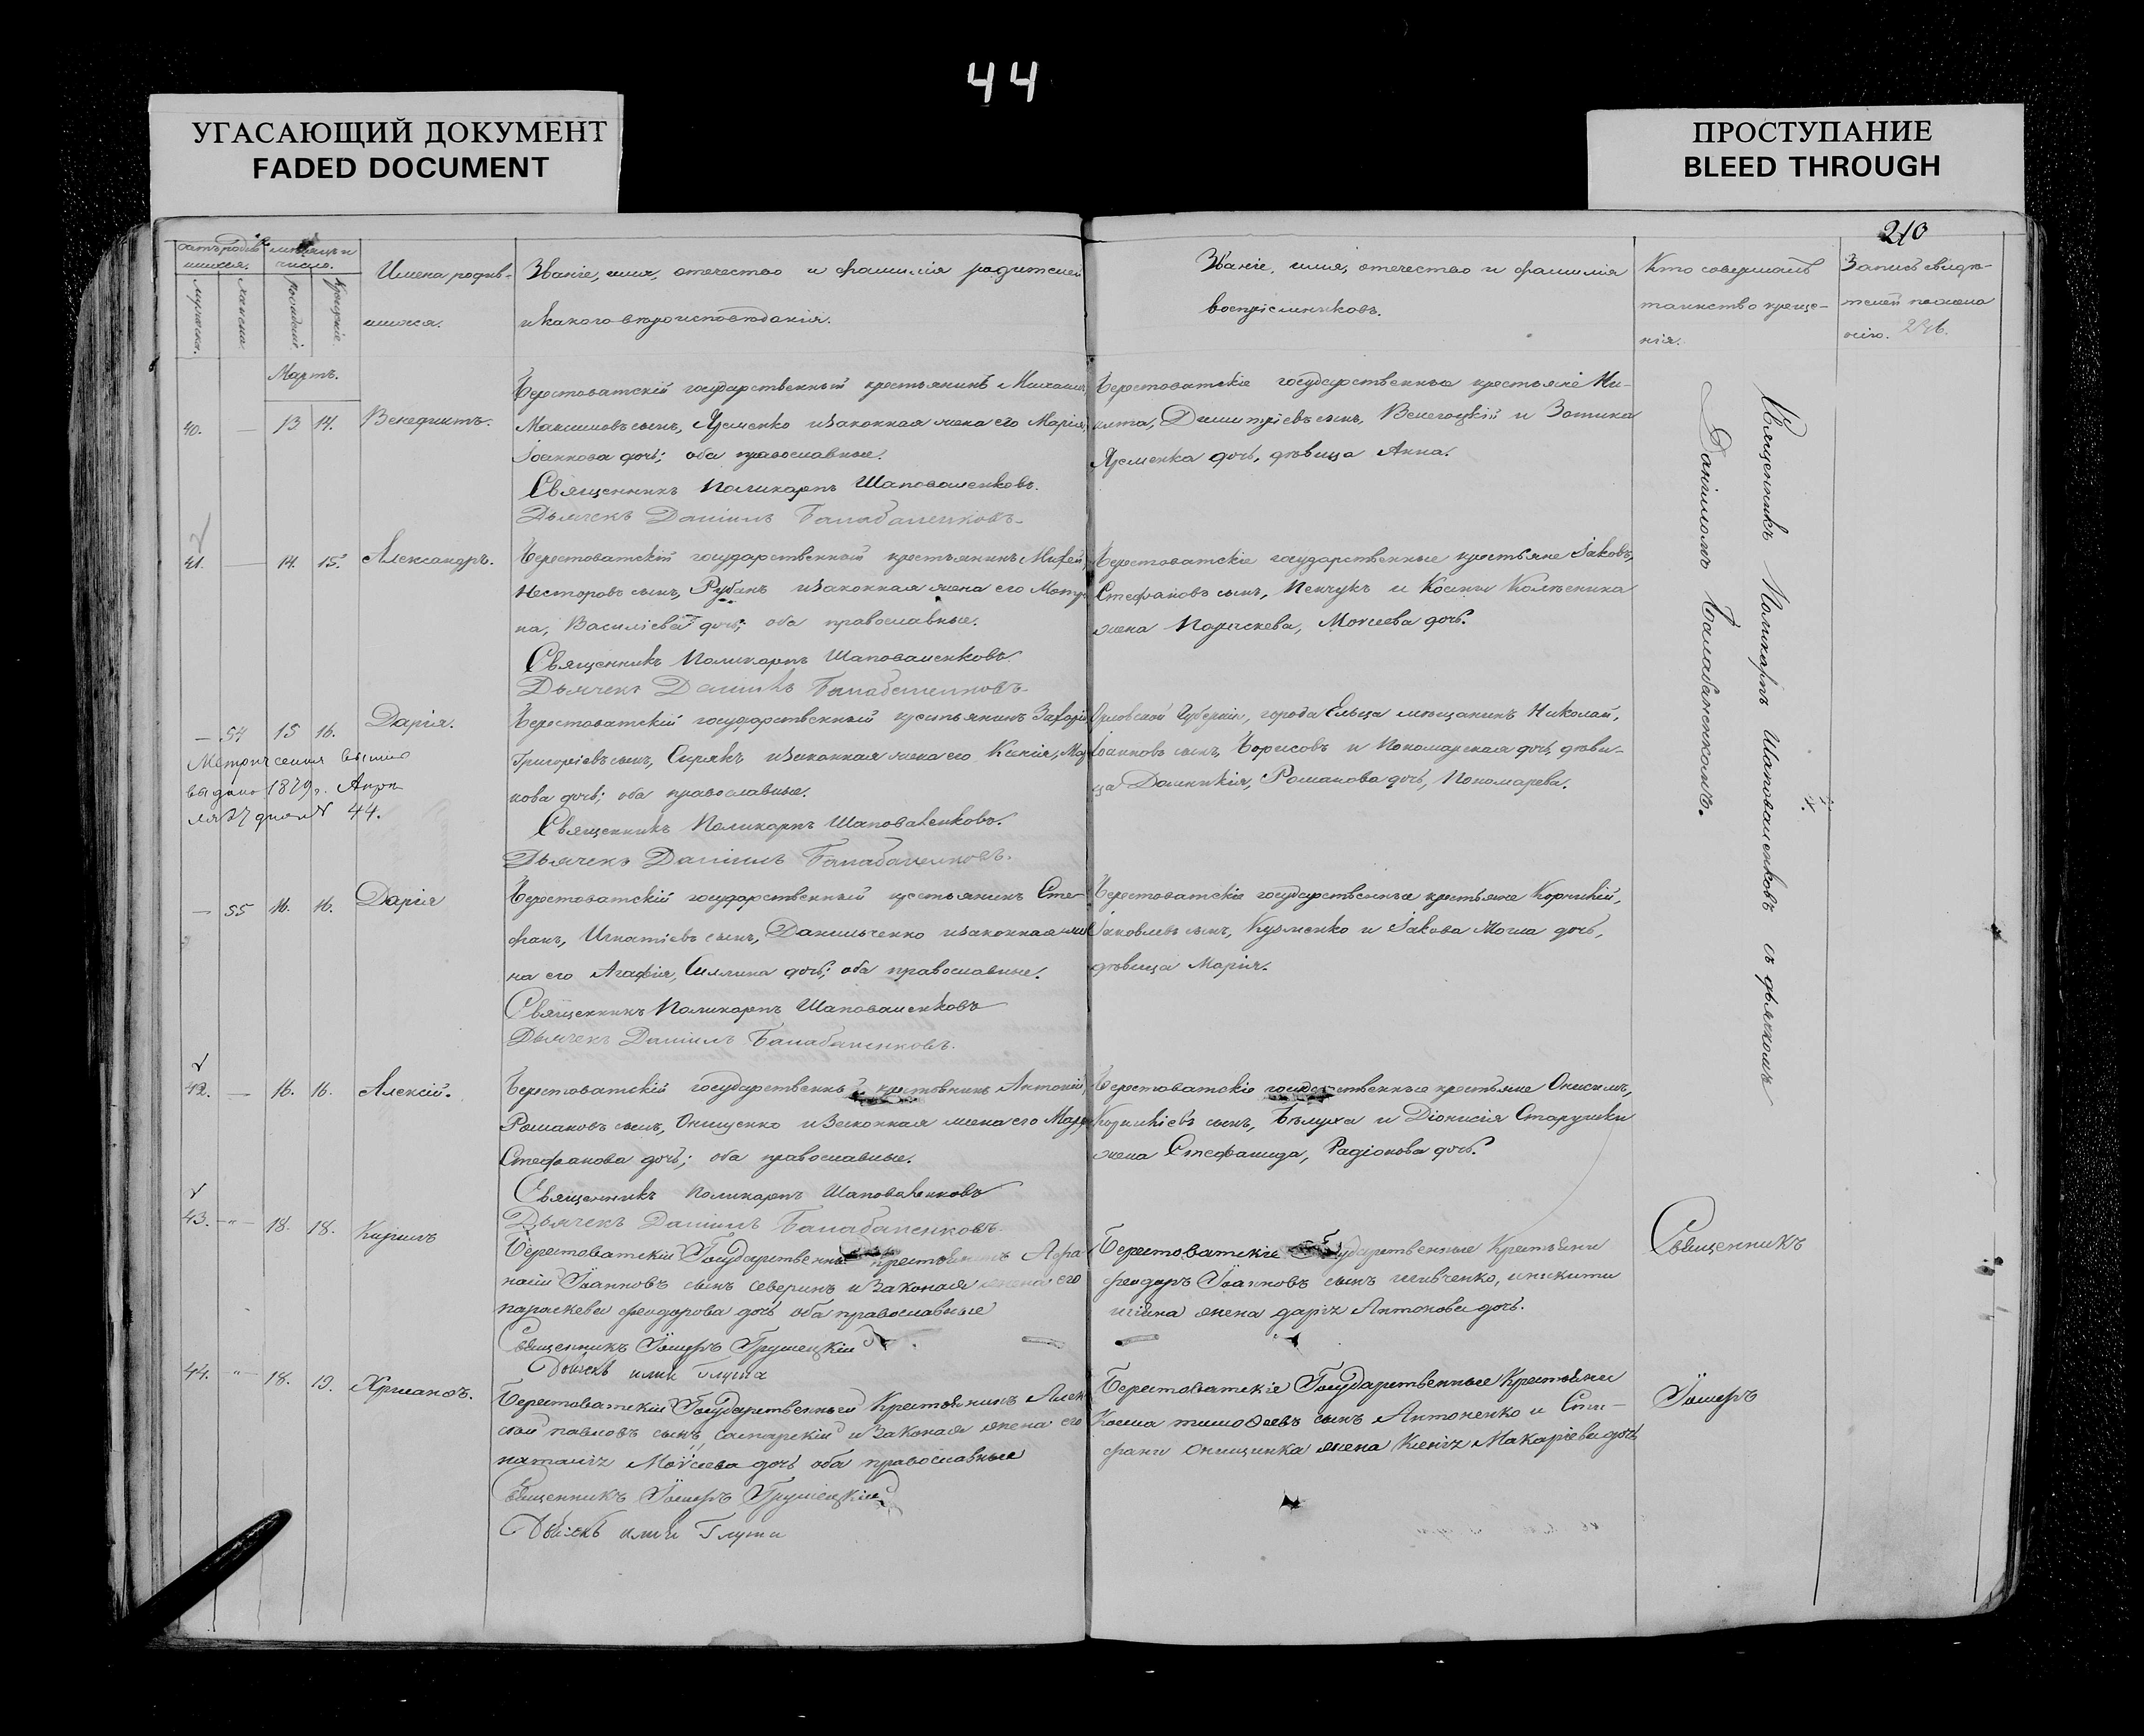 44
УГАСАЮЩИЙ ДОКУМЕНТ
FADED DOCUMENT
ПРОСТУПАНИЕ
BLEED THROUGH
210
Имена родив-
шихся.
Званіе, имя, отечество и фамилія родителей
и какого вѣроисповѣданія.
Званіе, имя, отечество и фамилія
воспріемниковъ.
Кто совершалъ
таинство креще-
нія.
Запись свидѣ-
Мартъ.
40. — 13 14. Венедиктъ.
Берестоватскій государственный крестьянинъ Михаилъ,
Максимовъ сынъ, Яременко и законная жена его Марія,
Іоаннова дочь; оба православные.
Священникъ Поликарпъ Шаповаленковъ.
Дьячекъ Даніилъ Балабаненковъ.
Берестоватскіе государственные крестьяне Ни-
кита, Димитріевъ сынъ, и Зотика
Яременка дочь, дѣвица Анна.
41. — 14. 15. Александръ.
Берестоватскій государственный крестьянинъ Михей,
Несторовъ сынъ, Рубанъ и законная жена его Мотро-
на, Василіева дочь; оба православные.
Священникъ Поликарпъ Шаповаленковъ.
Дьячекъ Даніилъ Балабаненковъ.
Берестоватскіе государственные крестьяне Іаковъ,
Стефановъ сынъ, Пенчукъ и Косьмы Колѣсника
жена Параскева, Моисеева дочь.
— 54 15 16. Дарія.
Метрическая выпись
выдана 1879 г. Апрѣ-
ля 27 дня № 44.
Берестоватскій государственный крестьянинъ Захарій
Григоріевъ сынъ, Сирякъ и законная жена его
нова дочь; оба православные.
Священникъ Поликарпъ Шаповаленковъ.
Дьячекъ Даніилъ Балабаненковъ.
Орловской Губерніи, города Ельца мѣщанинъ Николай,
Іоанновъ сынъ, Борисовъ и Пономарская дочь, дѣви-
ца Домникія, Романова дочь, Пономарева.
— 55 16. 16. Дарія
Берестоватскій государственный крестьянинъ Сте-
фанъ, Игнатіевъ сынъ, Данильченко и законная же-
на его Агафія, дочь; оба православные.
Священникъ Поликарпъ Шаповаленковъ
Дьячекъ Даніилъ Балабаненковъ.
Берестоватскіе государственные крестьяне Корнилій,
Іаковлевъ сынъ, Кузменко и Іакова дочь,
дѣвица Марія.
42. — 16. 16. Алексій.
Берестоватскій государственный крестьянинъ Антоній,
Романовъ сынъ, Онищенко и законная жена его
Стефанова дочь; оба православные.
Священникъ Поликарпъ Шаповаленковъ
Дьячекъ Даніилъ Балабаненковъ.
Берестоватскіе государственные крестьяне Онисимъ,
Корниліевъ сынъ, Бѣлуха и Діонисія Старушки
жена Стефанида, Радіонова дочь.
Священникъ Поликарпъ Шаповаленковъ съ дьячкомъ
Даніиломъ Балабаненкомъ.
43. — " — 18. 18. Кирилъ
Берестоватскій Государственный крестьянинъ Афа
насій Іоанновъ сынъ северинъ и Законая жена его
параскева феодорова дочь оба православные
Священникъ Іосифъ Грушецкій
Берестоватскіе Государственные Крестьяни
феодоръ Іоанновъ сынъ
жена дарія Антонова дочь.
Священникъ
44. " — 18. 19.
Берестоватскій Государственный Крестьянинъ Алек
сѣй павловъ сынъ и Законая жена его
наталія Моисеева дочь оба православные
Священникъ Іосифъ Грушецкій
Берестоватскіе Государственные Крестьяни
Косма тимофеевъ сынъ Антоненко и Сти-
фана онищинка жена Макаріева дочь
Іосифъ